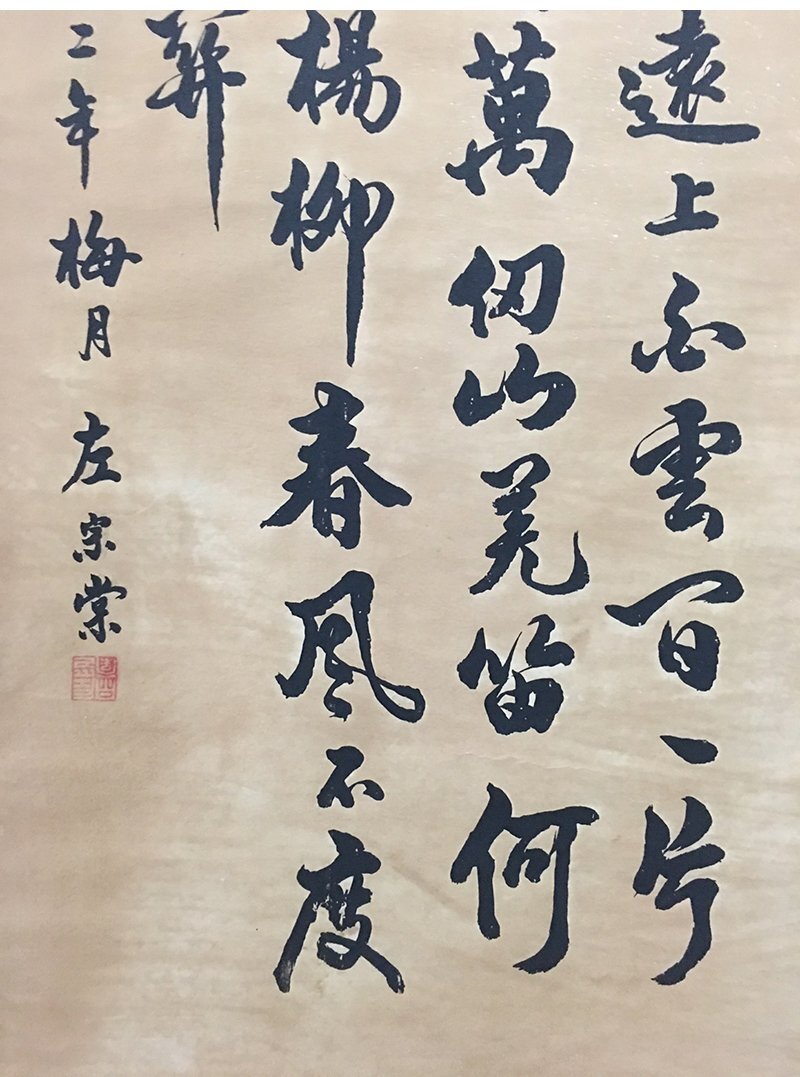 遠上白雲間一片
萬仞山羌笛何
楊柳春風不度
二年梅月左宗棠